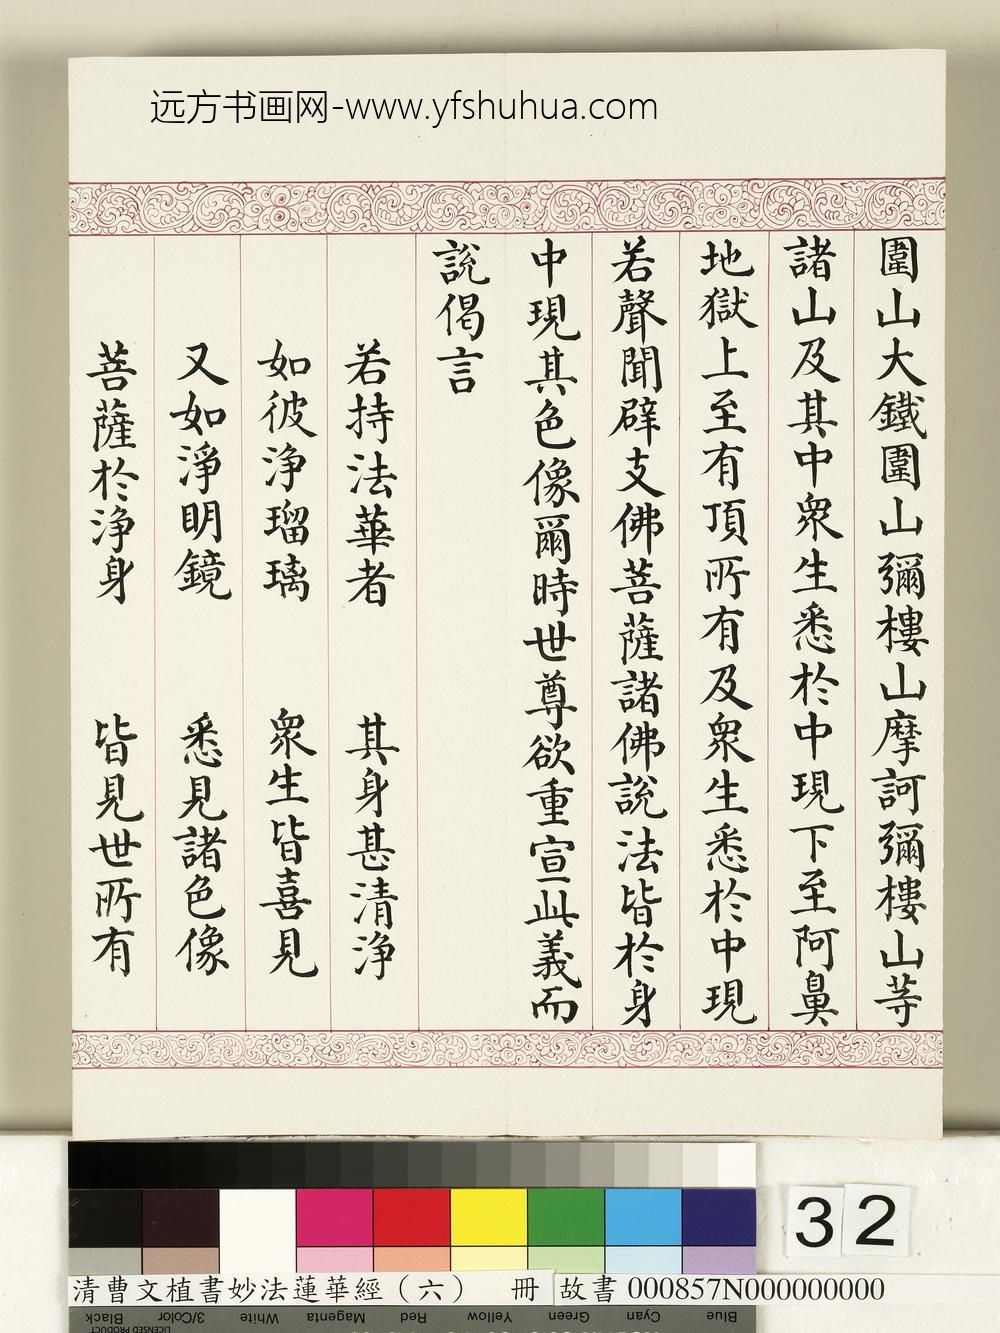 远方书画网-www.yfshuhua.com
圍山大鐵圍山彌樓山摩訶彌樓山等
諸山及其中眾生悉於中現下至阿鼻
地獄上至有頂所有及眾生悉於中現
若聲聞辟支佛菩薩諸佛說法皆於身
中現其色像爾時世尊欲重宣此義而
說偈言
若持法華者 其身甚清淨
如彼淨瑠璃 眾生皆喜見
又如淨明鏡 悉見諸色像
菩薩於淨身 皆見世所有
32
清曹文植書妙法蓮華經（六） 冊 故書 000857N000000000
Black 3/Color White Magenta Red Yellow Green Cyan Blue
LICENSED PRODUCT